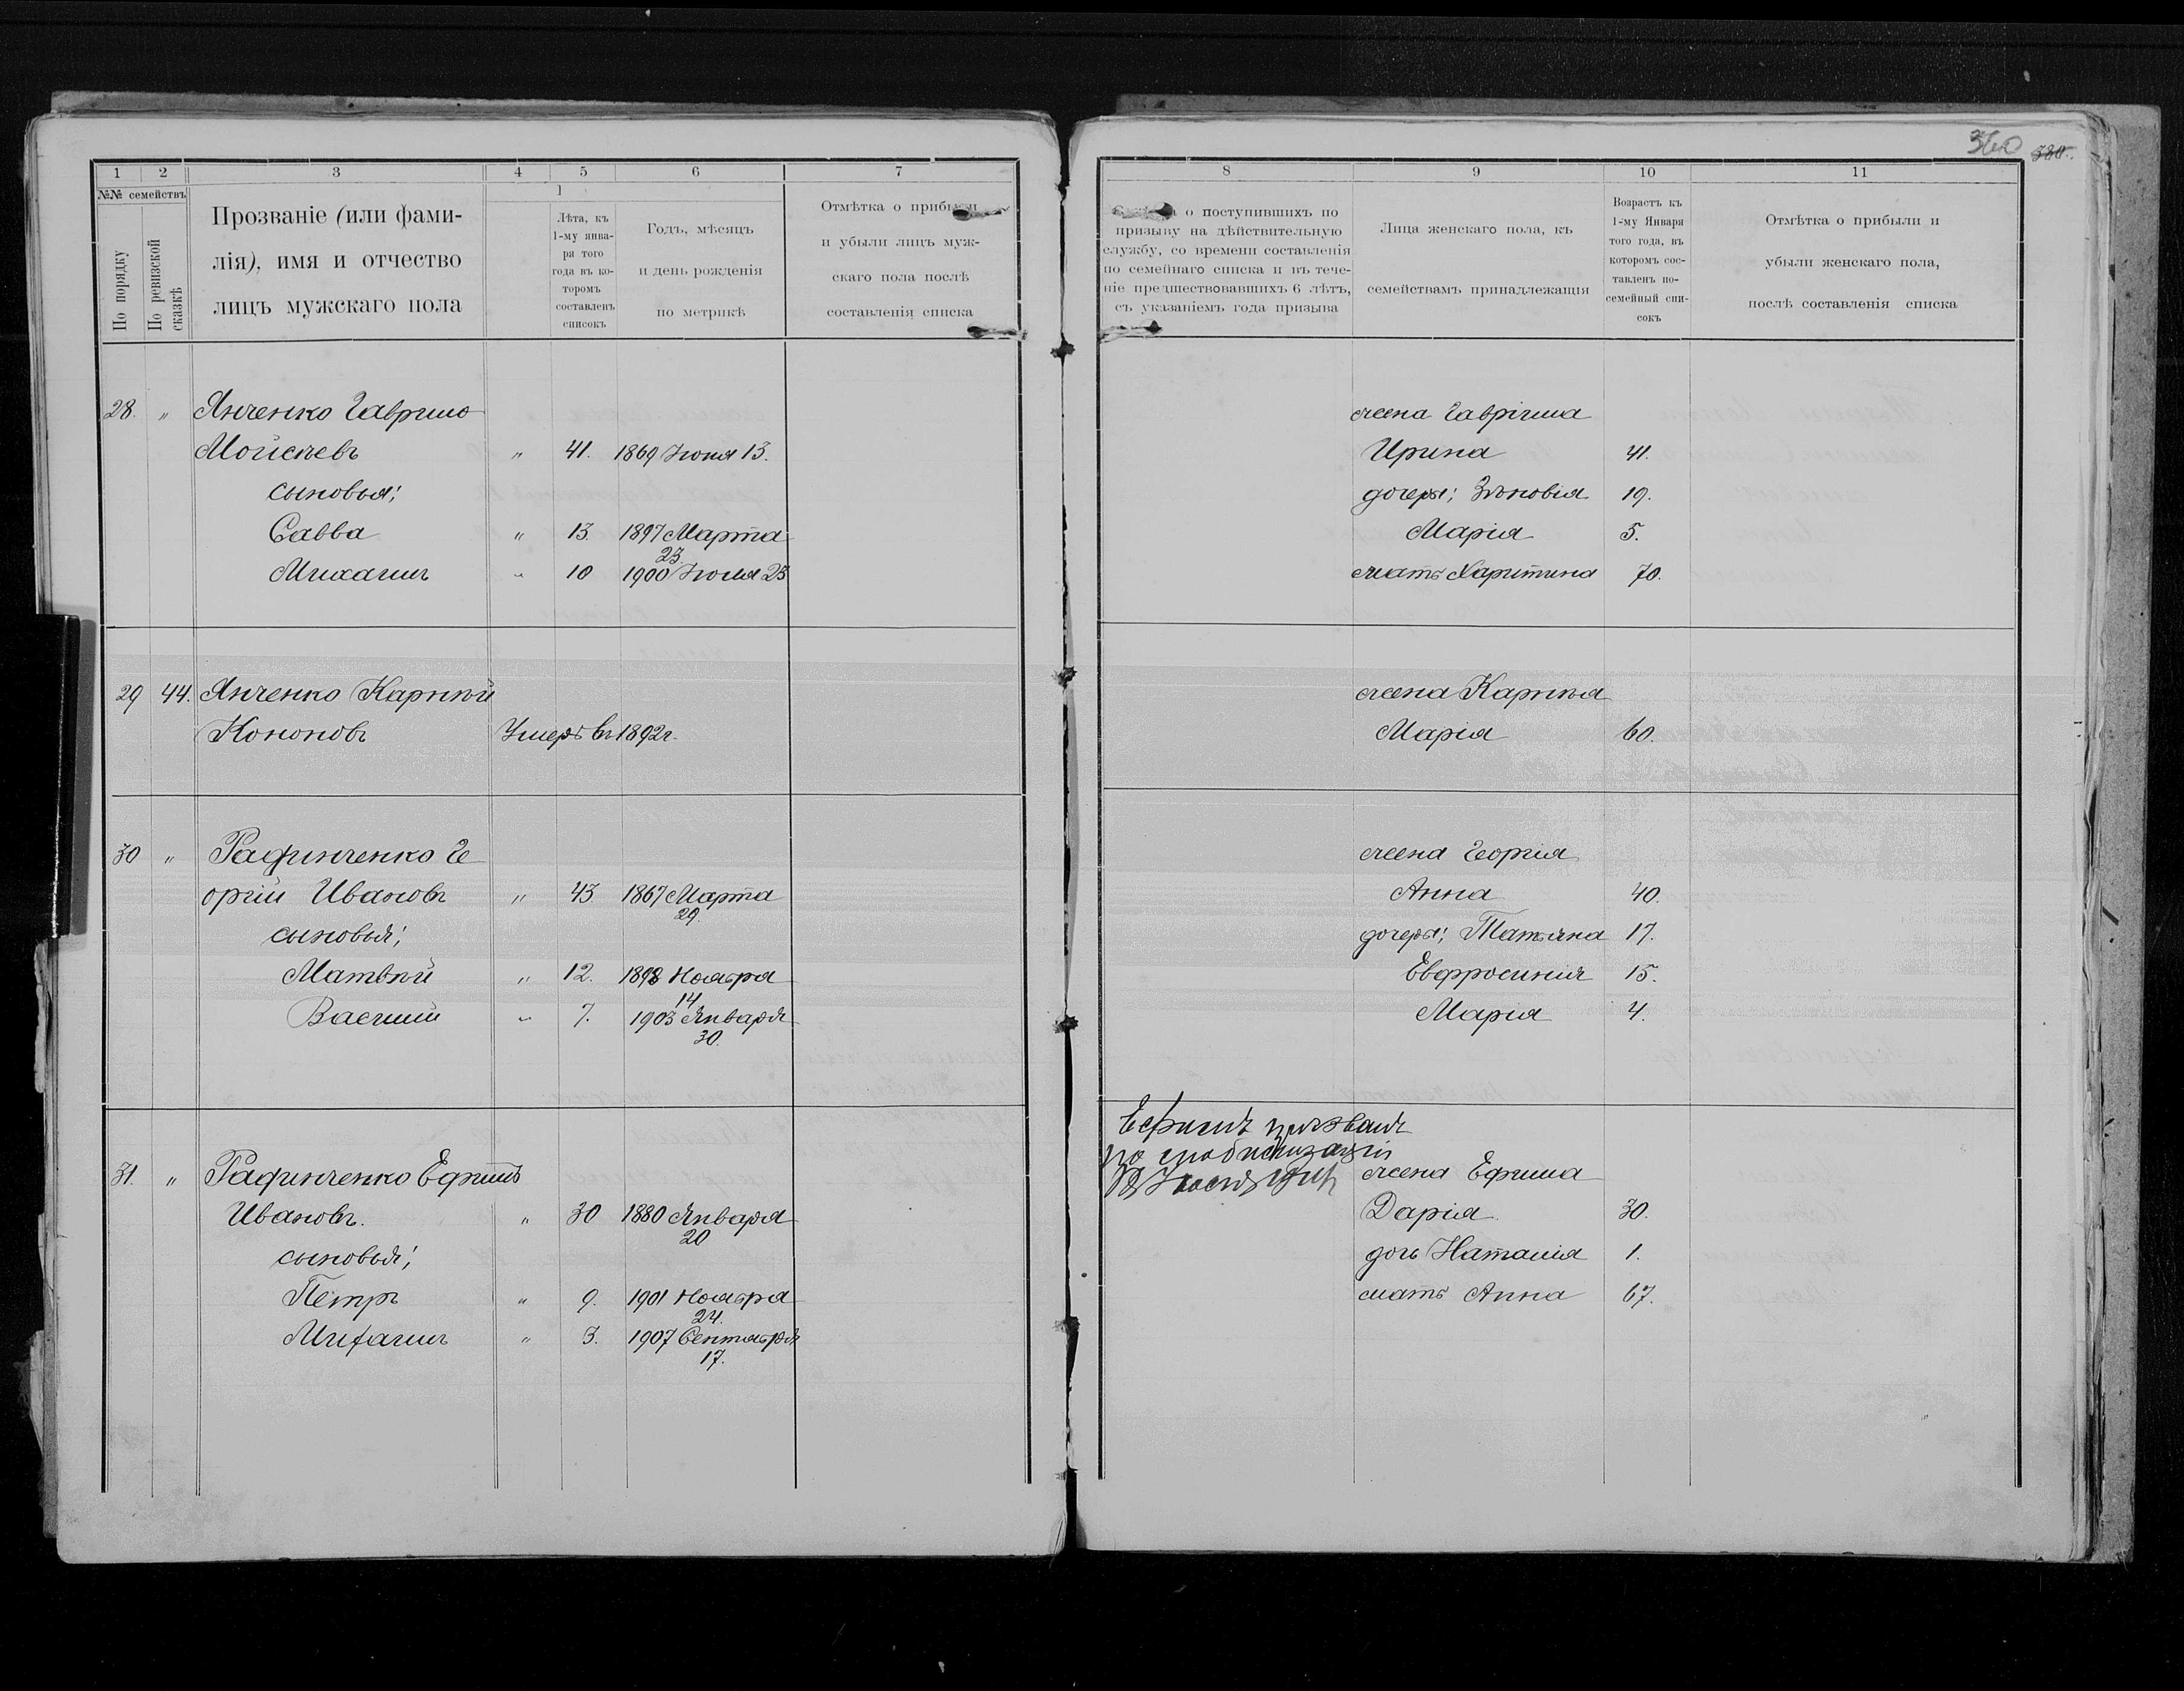 360 380.
1 2 3 4 5 6 7
№№ семействъ
По порядку
По ревизской сказкѣ
Прозваніе (или фами-
лія), имя и отчество
лицъ мужскаго пола
1
Лѣта, къ
1-му янва-
ря того
года въ ко-
торомъ
составленъ
списокъ
Годъ, мѣсяцъ
и день рожденія
по метрикѣ
Отмѣтка о прибыли
и убыли лицъ муж-
скаго пола послѣ
составленія списка
28. " Янченко Гаврило
Мойсѣевъ " 41. 1869 Іюня 13.
сыновья;
Савва " 13. 1897 Марта
23.
Михаилъ " 10 1900 Іюля 23
29 44. Янченко Карпѣй
Кононовъ Умеръ въ 1892г.
30 " Радинченко Ге
оргій Ивановъ " 43 1867 Марта
29.
сыновья;
Матвѣй " 12. 1898 Ноября
14
Василій " 7. 1903 Января
30.
31. " Радинченко Ефимъ
Ивановъ. " 30 1880 Января
20
сыновья;
Петръ " 9. 1901 Ноября
24.
Михаилъ " 3. 1907 Сентября
17.
8 9 10 11
о поступившихъ по
призыву на дѣйствительную
службу, со времени составленія
по семейнаго списка и въ тече-
ніе предшествовавшихъ 6 лѣтъ,
съ указаніемъ года призыва
Лица женскаго пола, къ
семействамъ принадлежащія
Возрастъ къ
1-му Января
того года, въ
которомъ сос-
тавленъ по-
семейный спи-
сокъ
Отмѣтка о прибыли и
убыли женскаго пола,
послѣ составленія списка
жена Гавріила
Ирина 41.
дочери; Зѣновія 19.
Марія 5.
мать Харитина 70.
жена Карпѣя
Марія 60.
жена Георгія
Анна 40.
дочери; Татьяна 17.
Евфросинія 15.
Марія 4.
Ефимъ призванъ
по мобилизаціи
жена Ефима
Дарія 30.
дочь Наталія 1.
мать Анна 67.